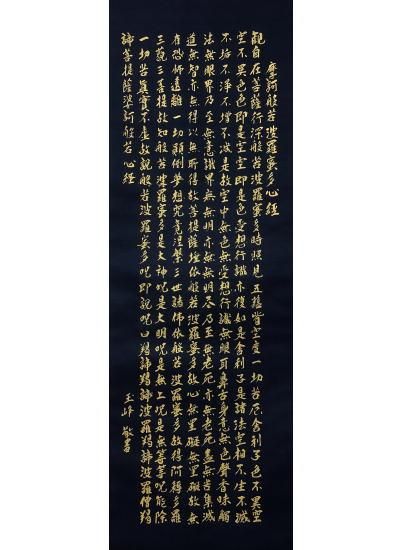 摩訶般若波羅蜜多心經
觀自在菩薩行深般若波羅蜜多時照見五蘊皆空度一切苦厄舍利子色不異空
空不異色色即是空空即是色受想行識亦復如是舍利子是諸法空相不生不滅
不垢不淨不增不減是故空中無色無受想行識無眼耳鼻舌身意無色聲香味觸
法無眼界乃至無意識界無無明亦無無明盡乃至無老死亦無老死盡無苦集滅
道無智亦無得以無所得故菩提薩埵依般若波羅蜜多故心無罣礙無罣礙故無
有恐怖遠離一切顛倒夢想究竟涅槃三世諸佛依般若波羅蜜多故得阿耨多羅
三藐三菩提故知般若波羅蜜多是大神呪是大明呪是無上呪是無等等呪能除
一切苦眞實不虛故說般若波羅蜜多呪即說呪曰羯諦羯諦波羅羯諦波羅僧羯
諦菩提薩婆訶般若心經
玉峰 敬書